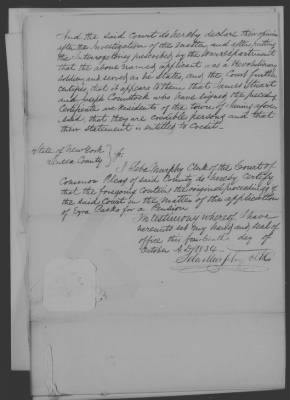 And the said Court do hereby declare their opinion
after the Investigation of the Matter and after putting
the Interrogatory prescribed by the War department
that the above named applicant was a Revolutionary
soldier and served as he states, and the Court further
certifies that it appears to them that James Stuart
and Comstock who have signed the preceding
Certificate are Residents of the town of
said, that they are credible persons and that
their statement is entitled to Credit.
State of New York
Seneca County } ss.
I Murphy Clerk of the Court of
Common Pleas of said County do hereby Certify
that the foregoing contains the original proceedings of
the said Court in the Matter of the application
of Ezra for a Pension
In testimony whereof I have
hereunto set my hand and seal of
office this fourteenth day of
October A.D. 1834
Murphy Clk